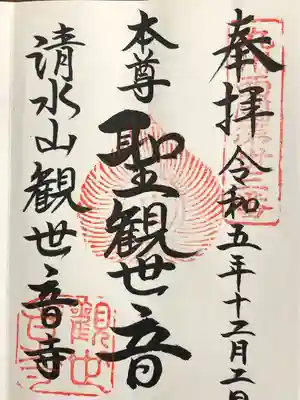 奉拝 令和五年十二月二日
本尊 聖観世音
清水山観世音寺